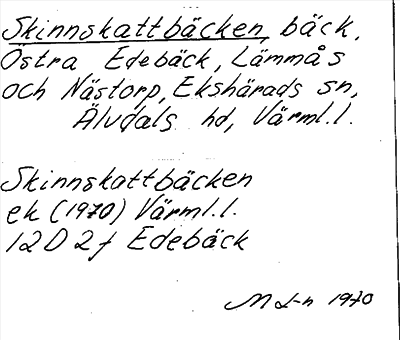 Skinnskattbäcken, bäck,
Östra Edebäck, Lämmås
och Nästorp, Ekshärads sn,
Älvdals hd, Värml.l.
Skinnskattbäcken
ek (1970) Värml.l.
12D2f Edebäck
M L-n 1970